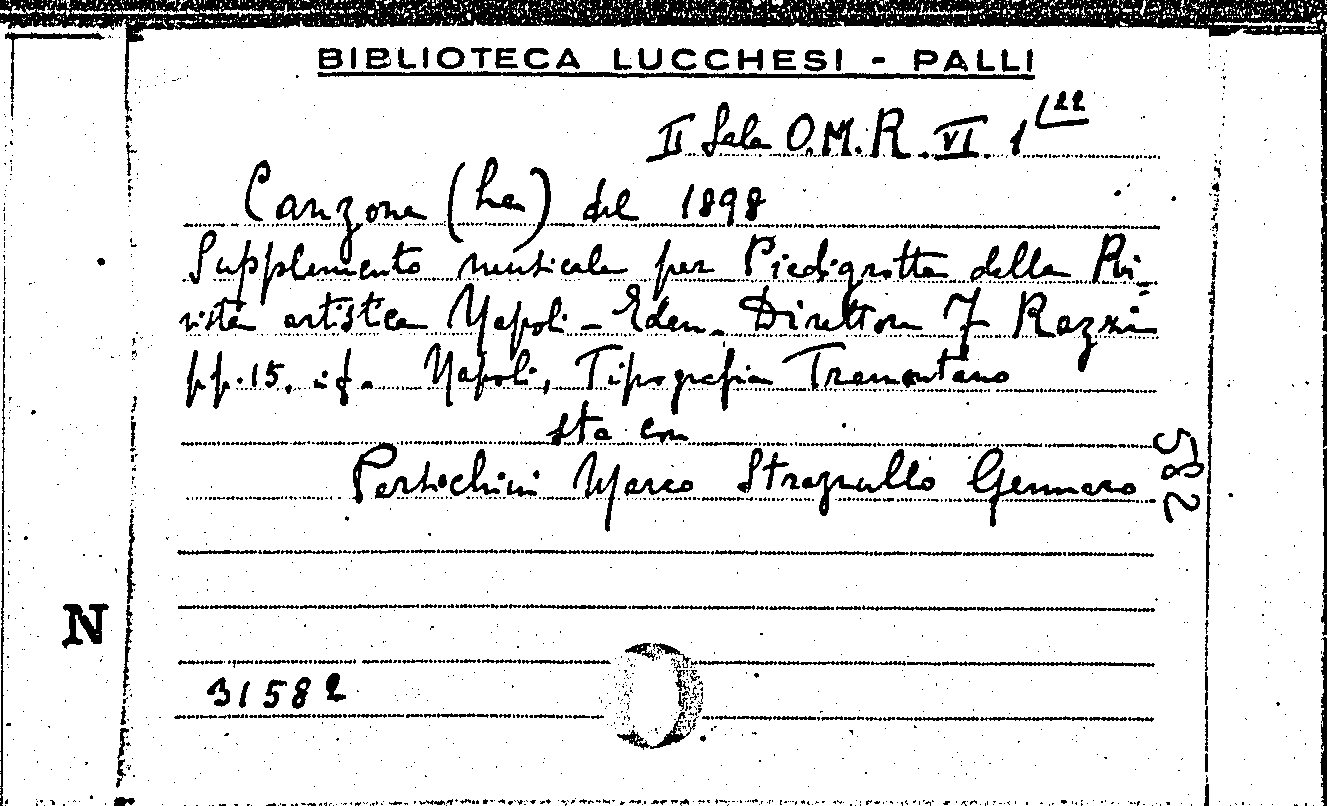 BIBLIOTECA LUCCHESI - PALLI
II Sala O.M.R. VI 1 22
Canzone (La) del 1898
Supplemento musicale per Piedigrotta della Ri-
vista artistica Napoli - Eden. Direttore F. Razzi
pp. 15. in f. Napoli, Tipografia Tramontano
sta con
Marco Stragnullo Gennaro
582
N
31582